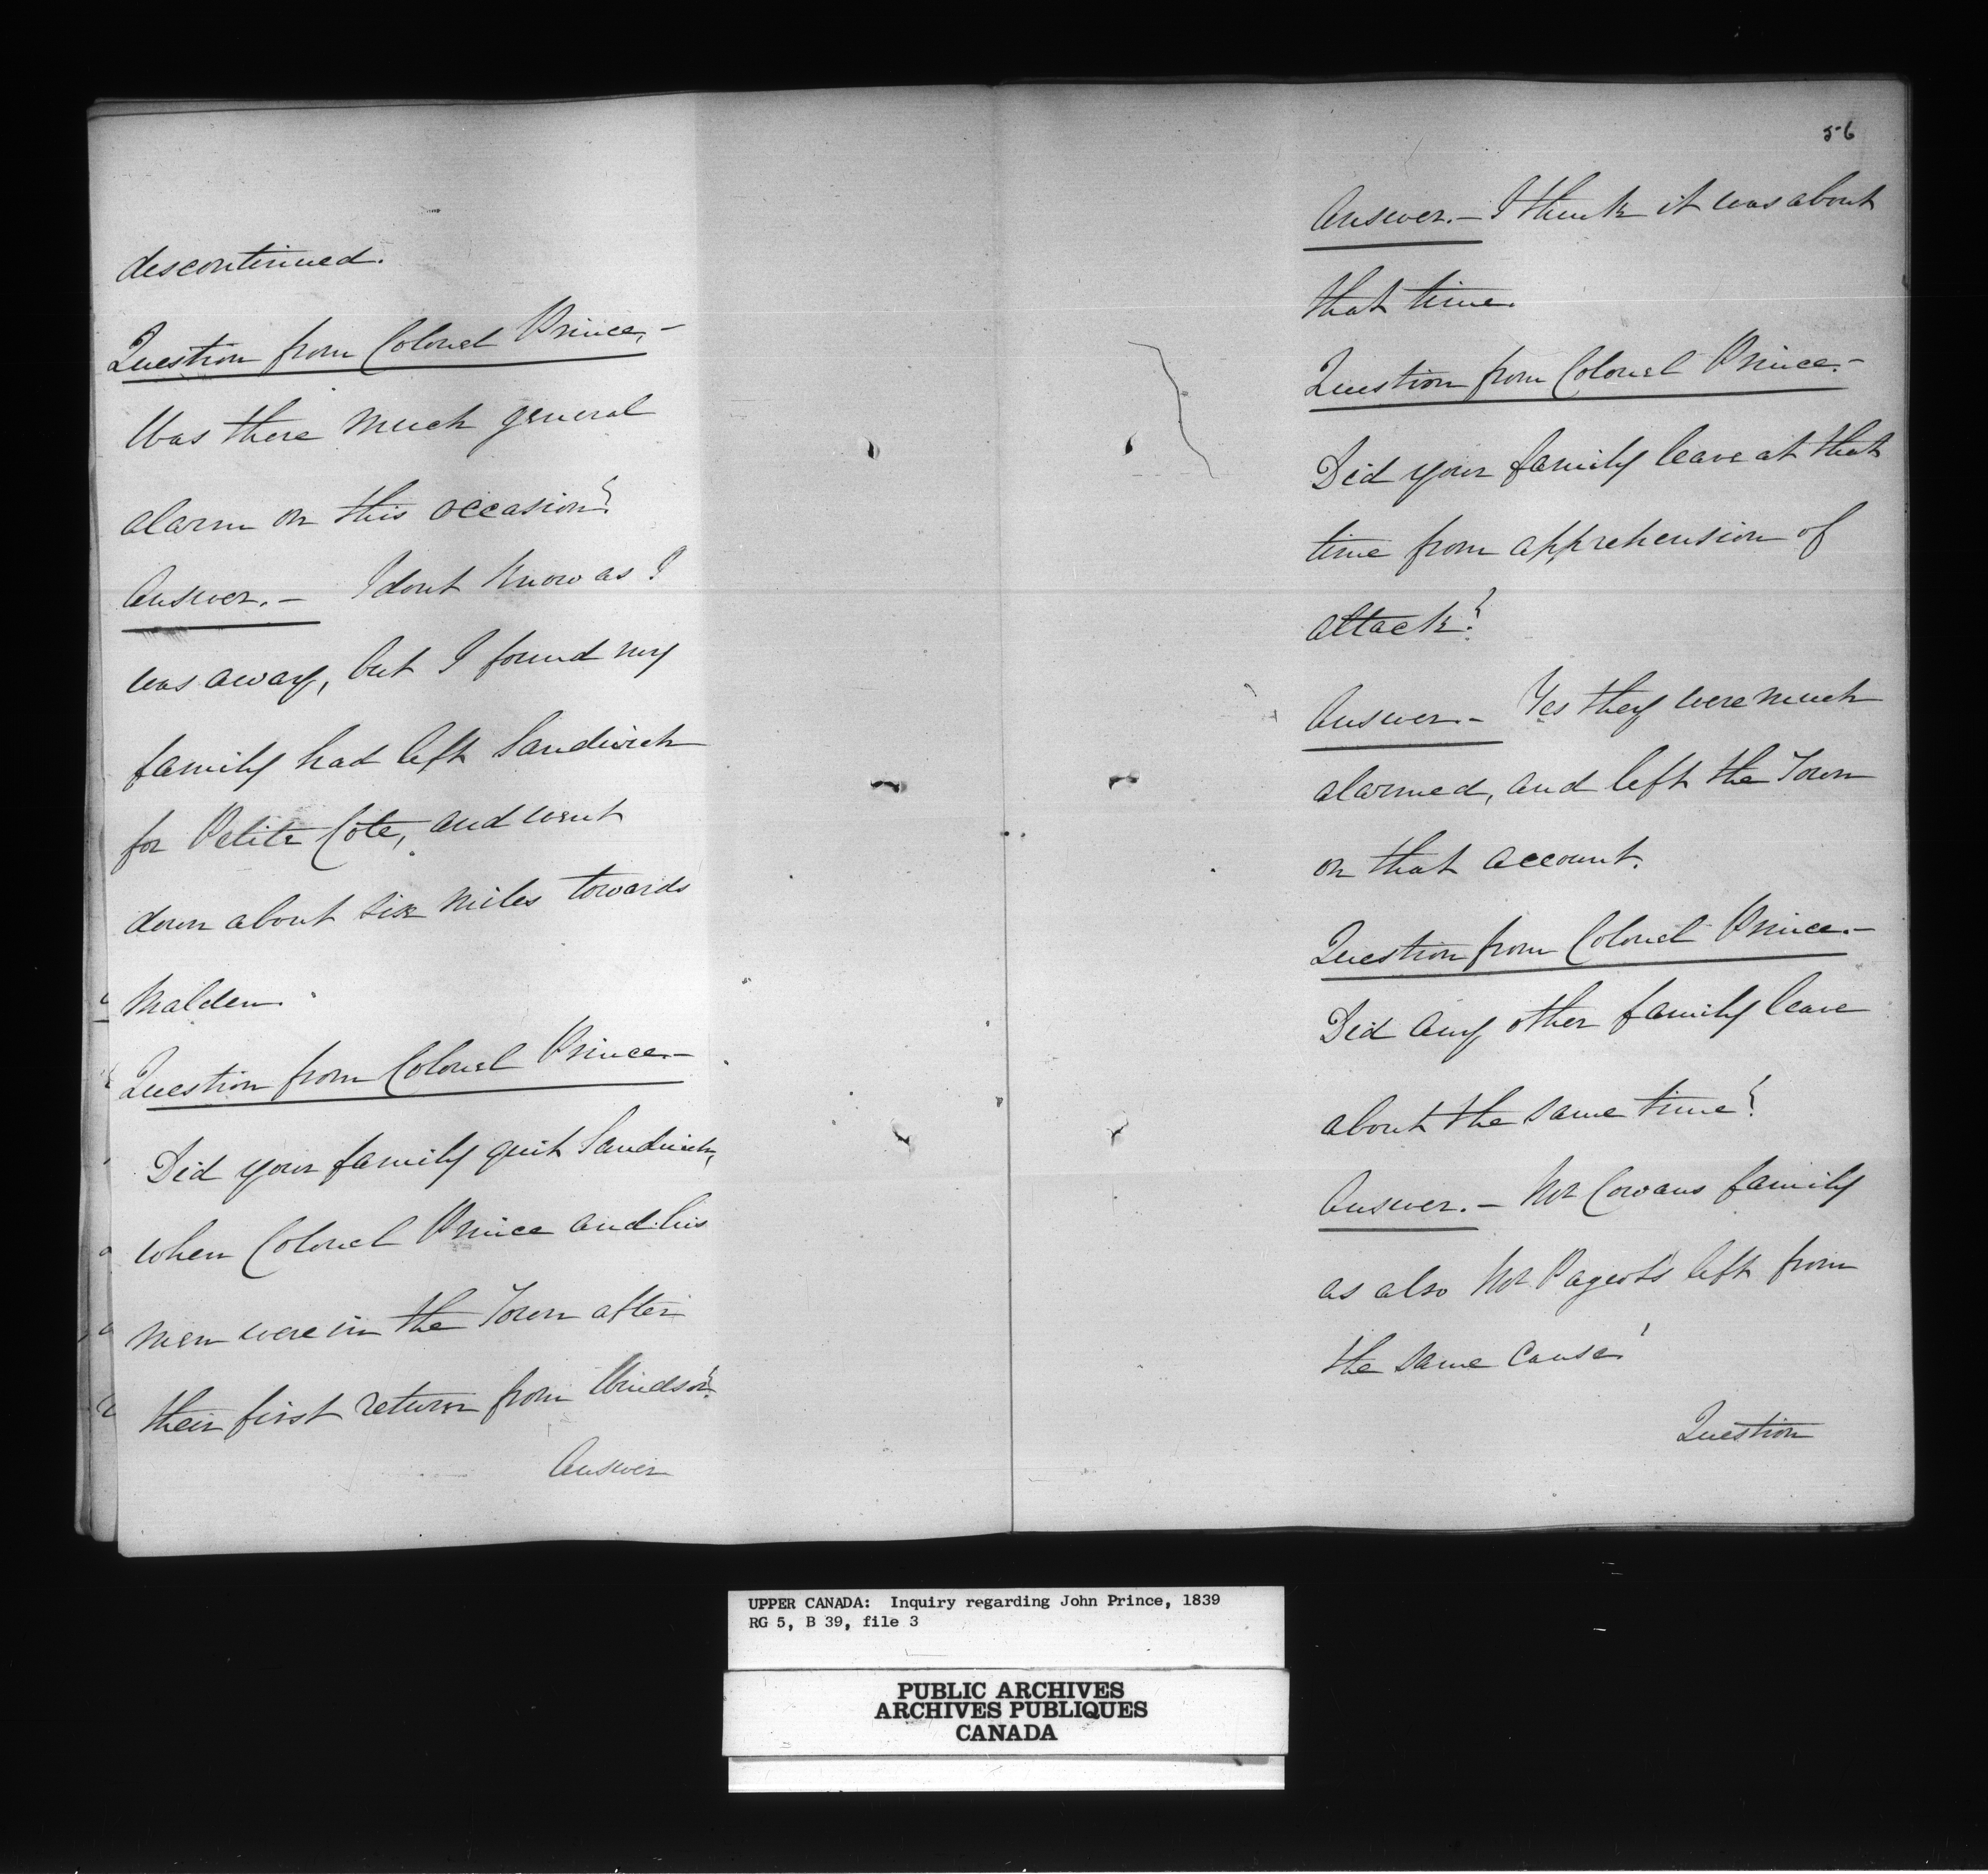 discontinued.
Question from Colonel Prince.—
Was there much general
alarm on this occasion?
Answer.— I dont know as I
was away, but I found my
family had left Sandwich
for Petite Côte, and went
down about six miles towards
Malden.
Question from Colonel Prince.—
Did your family quit Sandwich,
when Colonel Prince and his
men were in the Town after
their first return from Windsor?
Answer
56
Answer.— I think it was about
that time.
Question from Colonel Prince.—
Did your family leave at that
time from apprehension of
attack?
Answer.— Yes they were much
alarmed, and left the Town
on that account.
Question from Colonel Prince.—
Did any other family leave
about the same time?
Answer.— Mr Cowans family
as also Mr left from
the same cause!
Question
UPPER CANADA: Inquiry regarding John Prince, 1839
RG 5, B 39, file 3
PUBLIC ARCHIVES
ARCHIVES PUBLIQUES
CANADA